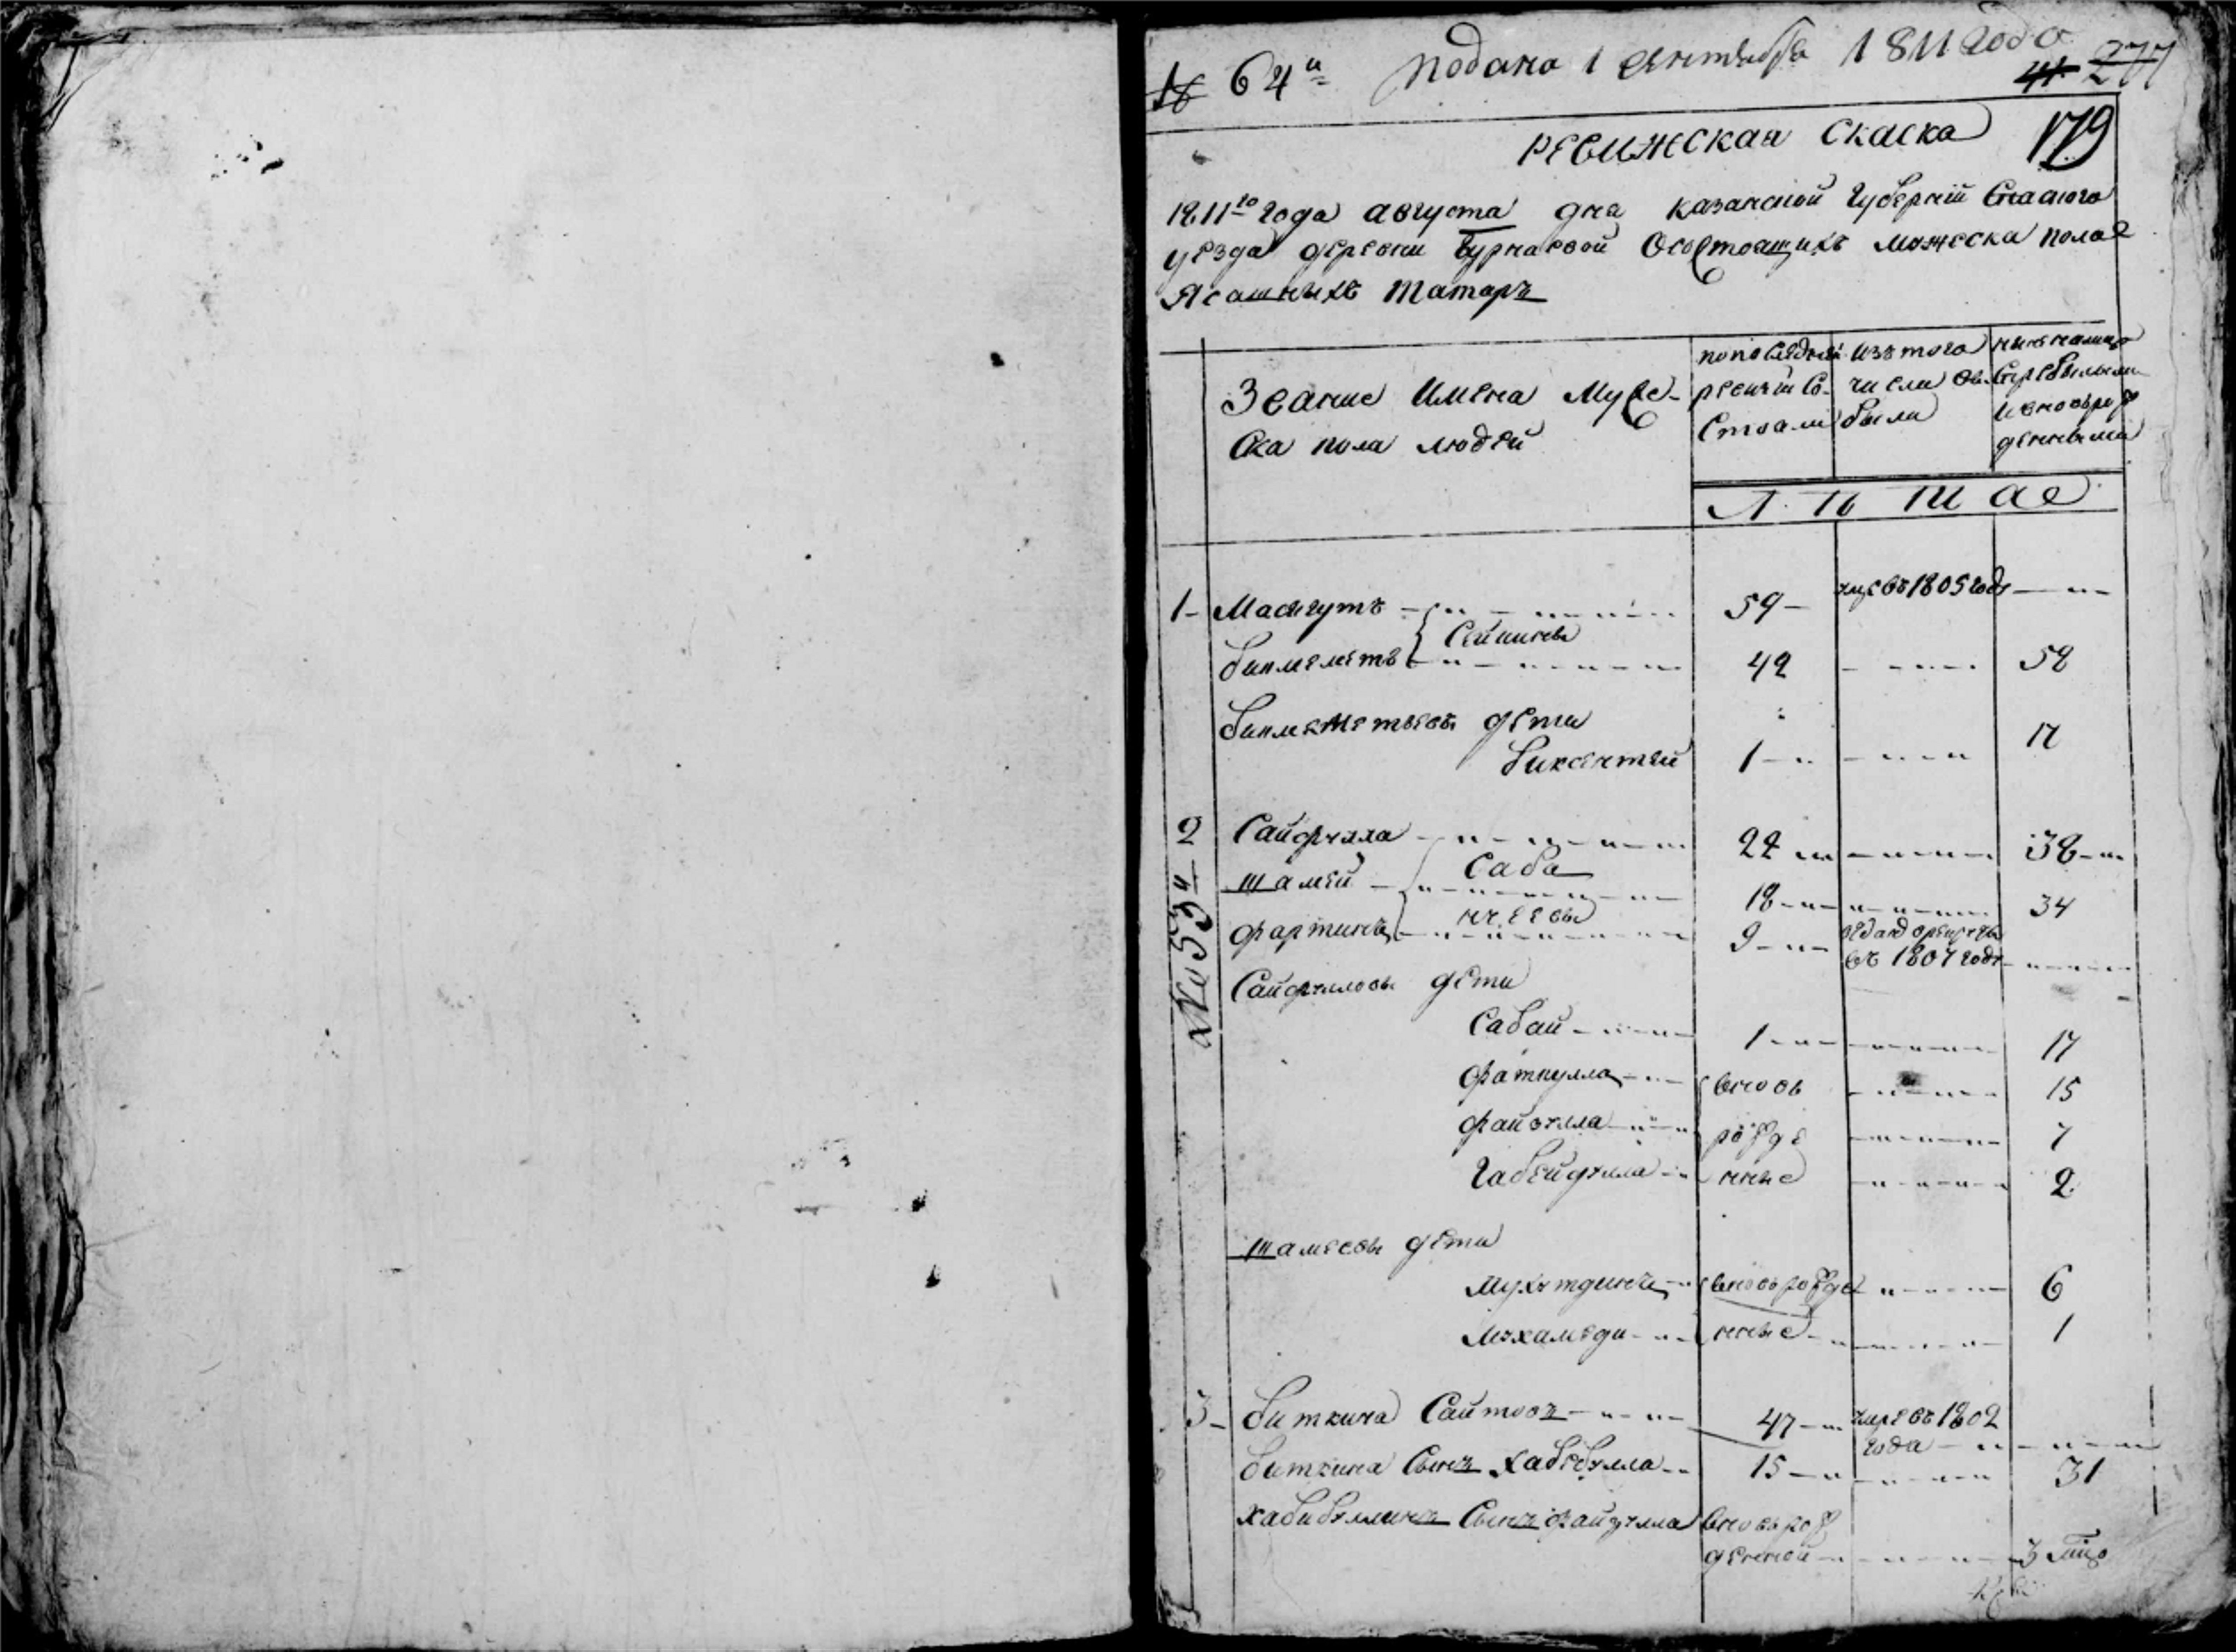 № 64й подано 1 сентября 1811 года
41 277
РЕВИЖСКАЯ СКАСКА 179
1811го года августа дня казанской Губернии Спаского
уезда деревни Бурнаевой О состоящихъ мужеска пола
Ясашныхъ Татаръ
Звание Имена Муже-
ска пола людей
попоследней ревизии состояли
изъ того числа выбыли
ныне налицо
ЛѢТА
1 Масягутъ 59 умре въ 1805 годе
Сеитовы
бикмеметъ 42 58
бикмеметьевы дети
бикентей 1 17
№ 53й
2 Сайфулла 22 38
Сабанчеевы
Шамей 18 34
фартинъ 9 въ 1807 годе
Сайфулловы дети
Сабай 1 17
фаткулла вновь 15
файзулла рожде 7
Габейдулла нные 2
Шамеевы дети
Мухутдинъ вновьрожде 6
Мухамеди нные 1
3 биткина Саитовъ 47 умре въ 1802
года
биткина Сынъ Хабибулла 15 31
Хабибуллинъ Сынъ файзулла вновьрож
денной 3